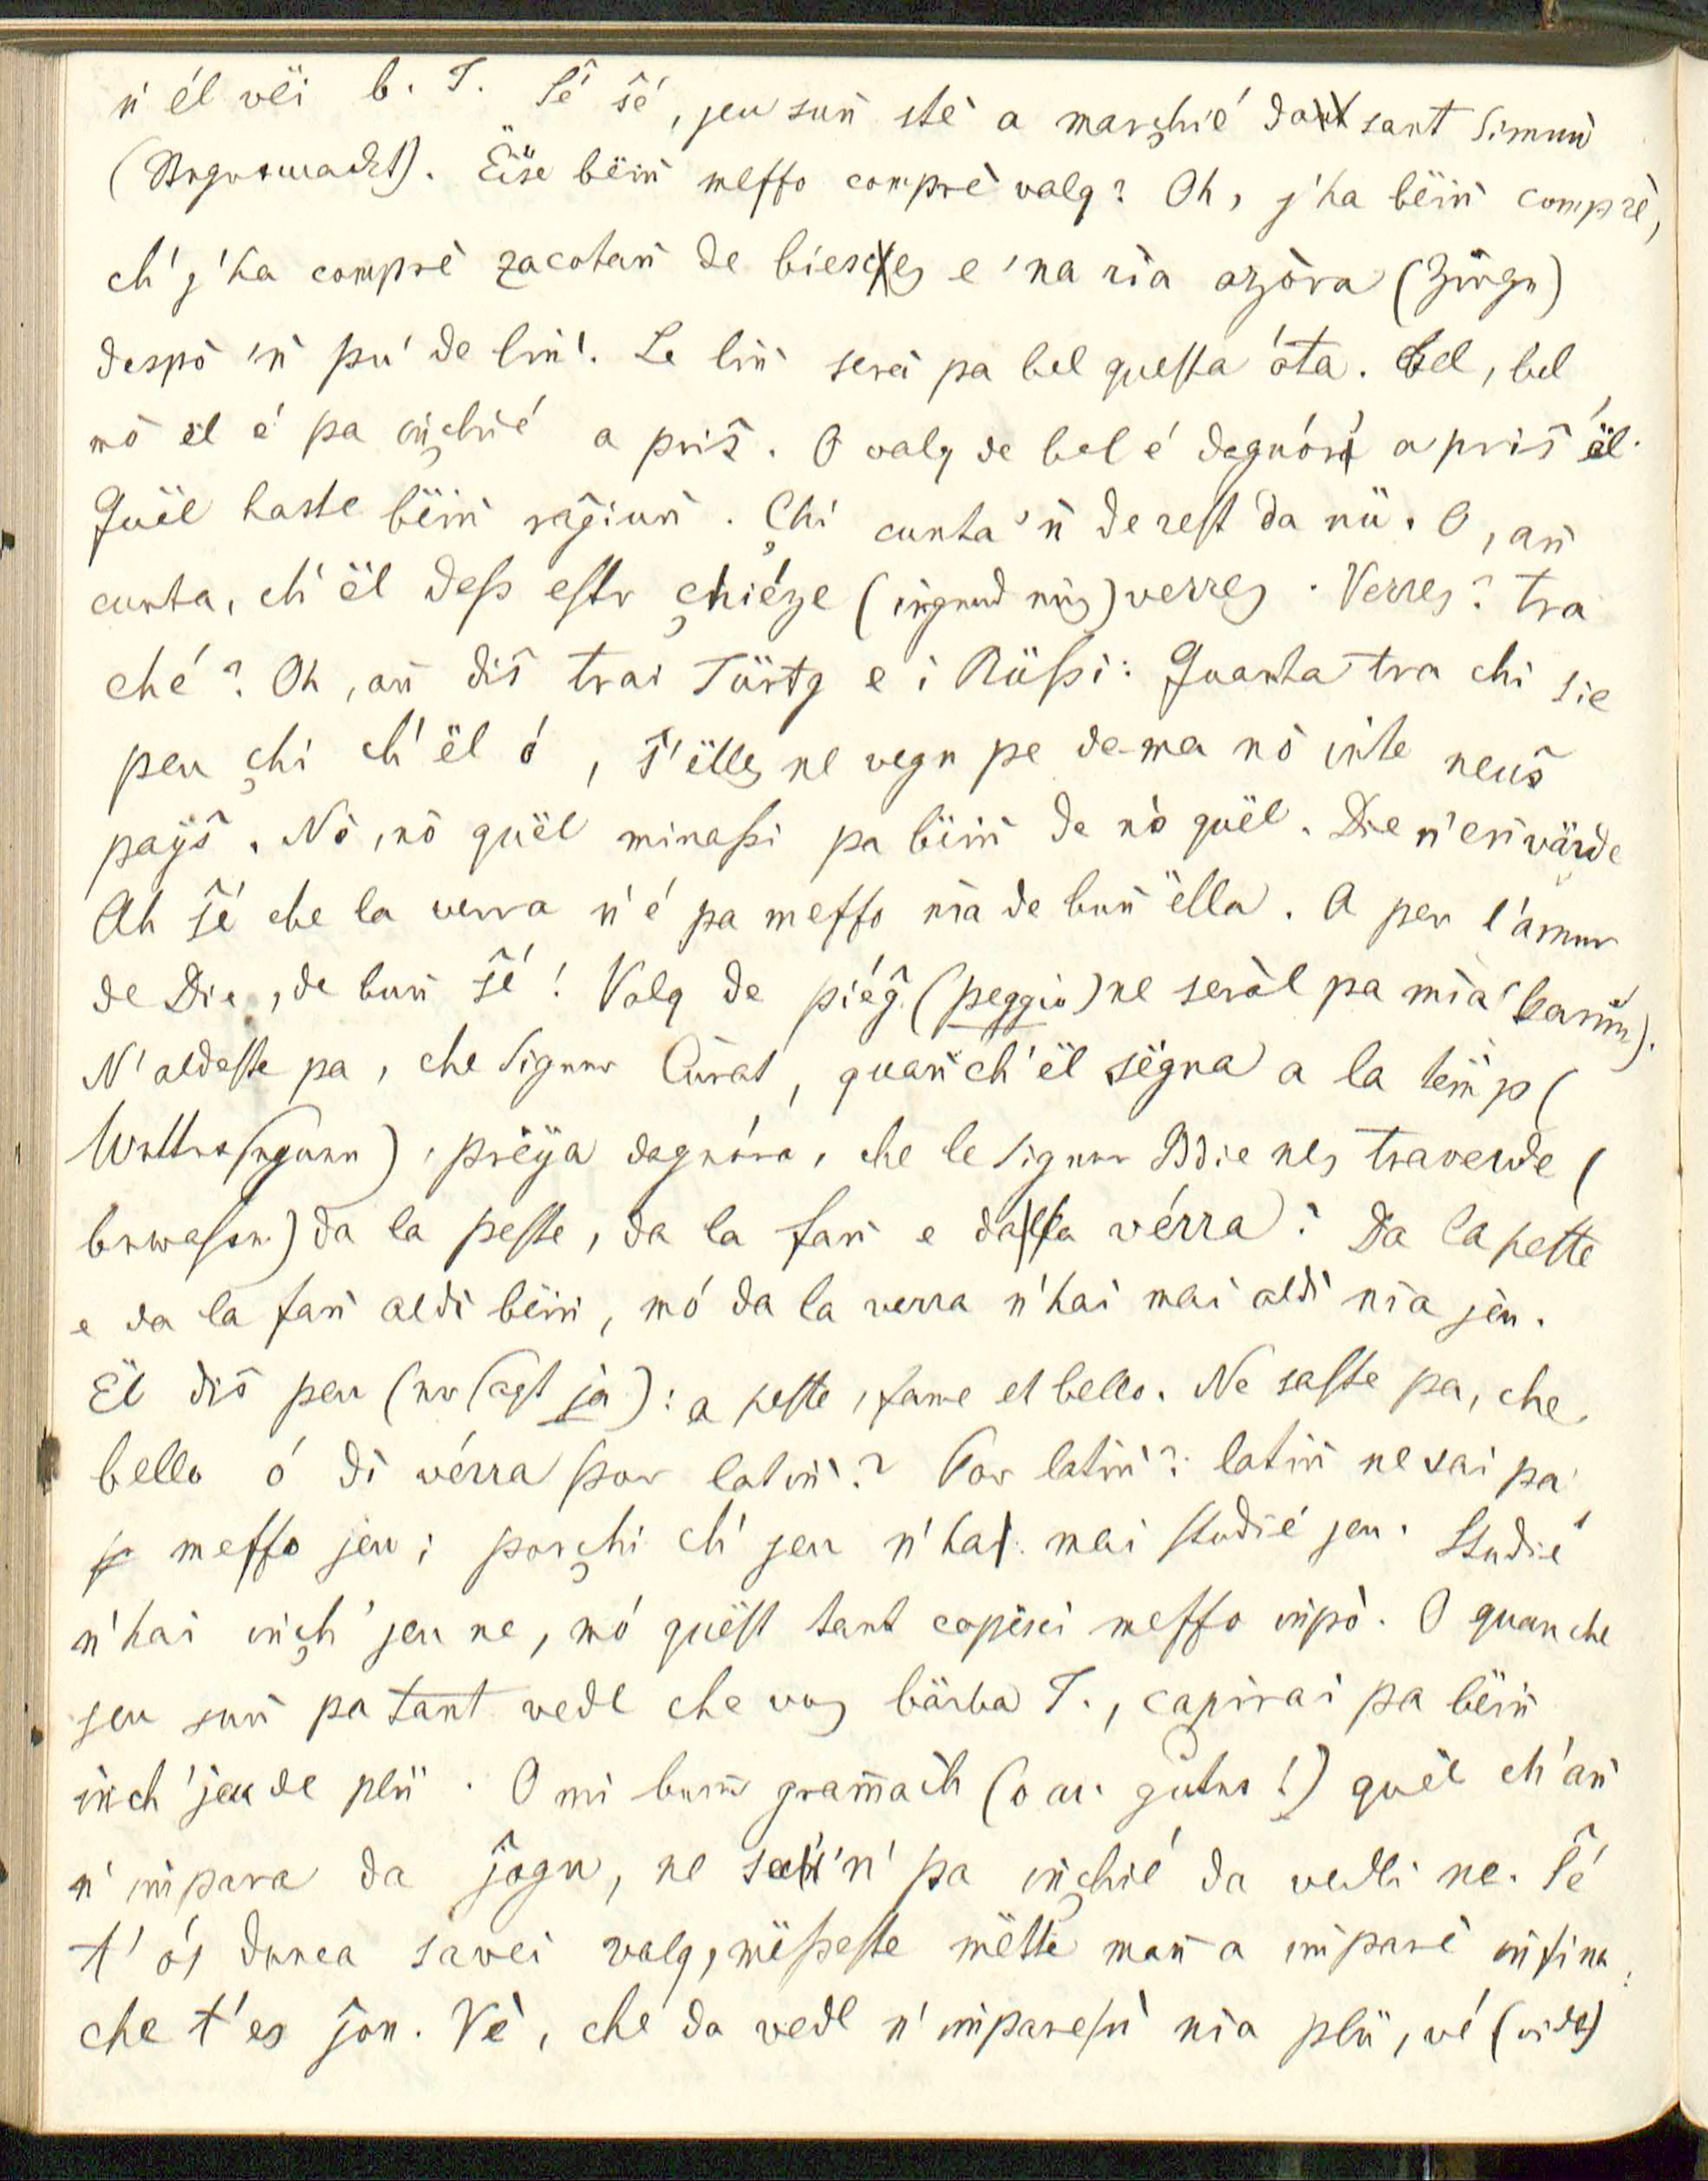 n' él vëi b. T. Sé sé, jeu suñ stè a marchié dant sant Simun
(Stegnerwadt). Ëise bëiñ meſſo comprè valg? Oh, j'ha bëiñ comprè,
ch' j'ha comprè zacotañ de biesces e 'na ria azòra (Zirgn)
despò 'ñ pu' de liñ'. Le liñ serà pa bel queſta óta. Bel, bel
mò ël é pa iñchié a priš. O valg de bel é dagnóra a priš ël.
Quël haste bëiñ rağiuñ. Chi cunta 'ñ de reſt da nü. O, añ
cunta, ch' ël deſs eſtr chiéze (irgend niz) verres. Verres? tra
ché? Oh, añ diš trai Türtg e i Rüſsi: Quanta tra chi sie
peu chi ch' ël ó, s' ëlles ne vegn pe dema nò inte neuš
payš. Nò, nò quël minaſsi pa bëiñ de nò quël. Die n'eñ värde
Ah sé che la verra n'é pa meſſo nia de buñ ëlla. A per l'amur
de Die, de buñ sé! Valg de piéğ (peggio) ne seràl pa mia' (kaum).
N'aldeſte pa, che Signur Curat, quañ ch' ël sëgna a la tëmp (
Wettersegnen), prëya dagnóra, che le Signur Ddie nes traverde (
bewahren) da la peſte, da la fañ e dalla vérra? Da la peſte
e da la fañ aldi bëiñ, mó da la verra n'hai mai aldì nia jeu.
Ël diš peu (er ſagt ja): a peſte, fame et bello. Ne saſte pa, che
bello ó dì vérra por latiñ? Por latiñ? latiñ ne sai pa
meſſo jeu; porchi ch' jeu n'hai mai ſtudié jeu. Studié
n'hai iñch' jeu ne, mó quëſt tant capësci meſſo impò. O quan che
jeu suñ pa tant vedl che vos bärba T., capirai pa bëiñ
iñch' jeu de plü. O mi buñ gramach (o du guter!) quël ch'añ
n' impara da jogn, ne sa'ñ' pa iñchié da vedli ne. Sé
t'ós dunca savei valg, mëſseſte mëtte mañ a imparè iñſina
che t'es jon. Vè, che da vedl n' impareſti nia plü, vé (vide)